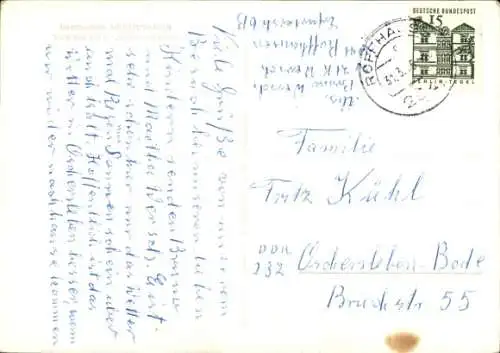 Viele Grüße von unserem
Besuch bei unseren lieben
Kindern senden Bruno
und Martha Worsch. Es ist
sehr schön hier nur das Wetter
mal Regen mal Sonnenschein aber
und kalt. Hoffentlich ist das
Wetter in Oschersleben besser, wenn
wir wieder nach hause kommen
Abs.
Bruno Worsch
z. Zt. K. Worsch
Roffhausen
DEUTSCHE BUNDESPOST
15
BERLIN-TEGEL
ROFFHAUSEN
Familie
Fritz Kühl
DDR
232 Oschersleben-Bode
Bruchstr 55